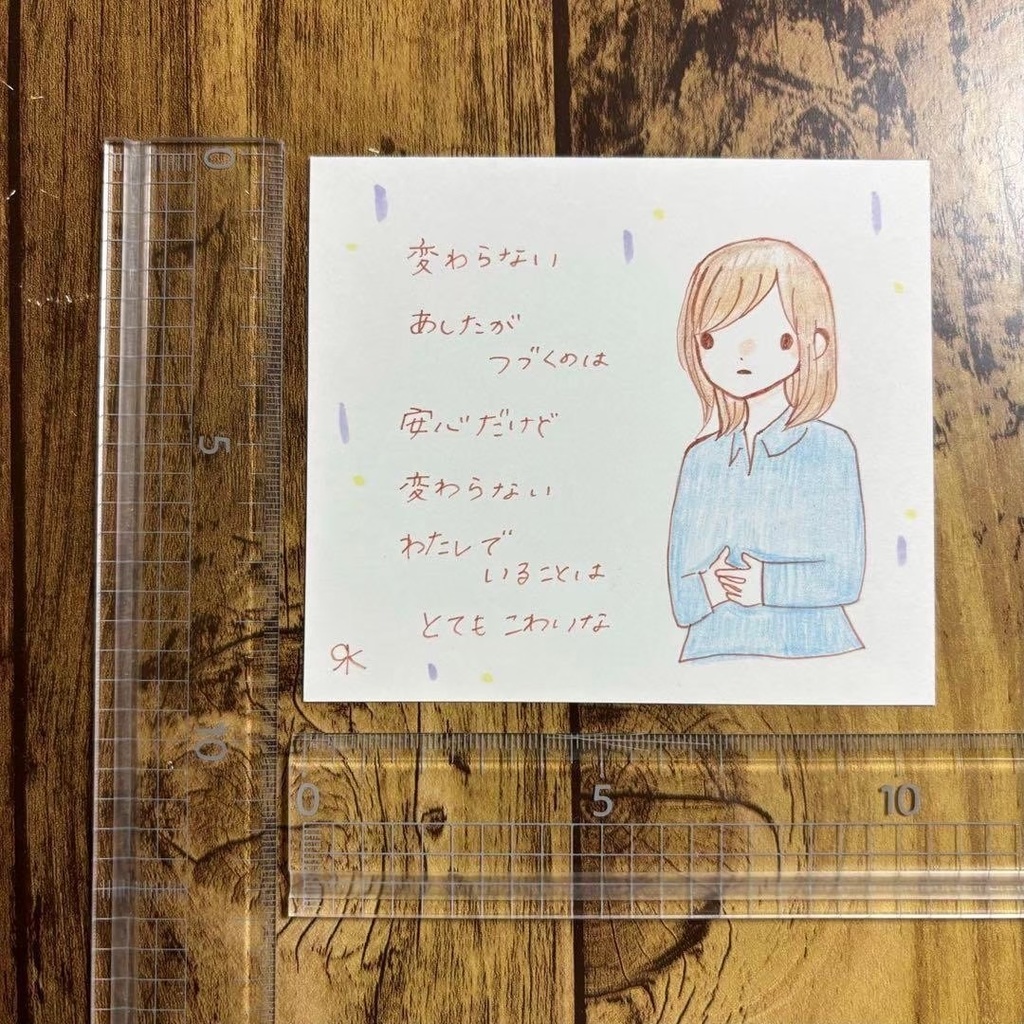 変わらない
あしたが
つづくのは
安心だけど
変わらない
わたしで
いることは
とてもこわいな
0
5
10
0
5
10